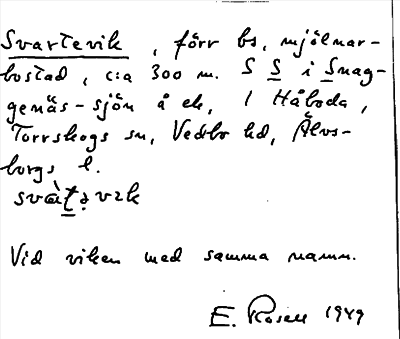 Svartevik, förr bs, mjölnar-
bostad, c:a 300 m. S S i Snag-
genäs-sjön å ek, 1 Håboda,
Torrskogs sn, Vedbo hd, Älvs-
borgs l.
svàtəvɪk
Vid viken med samma namn.
E. Rosell 1949